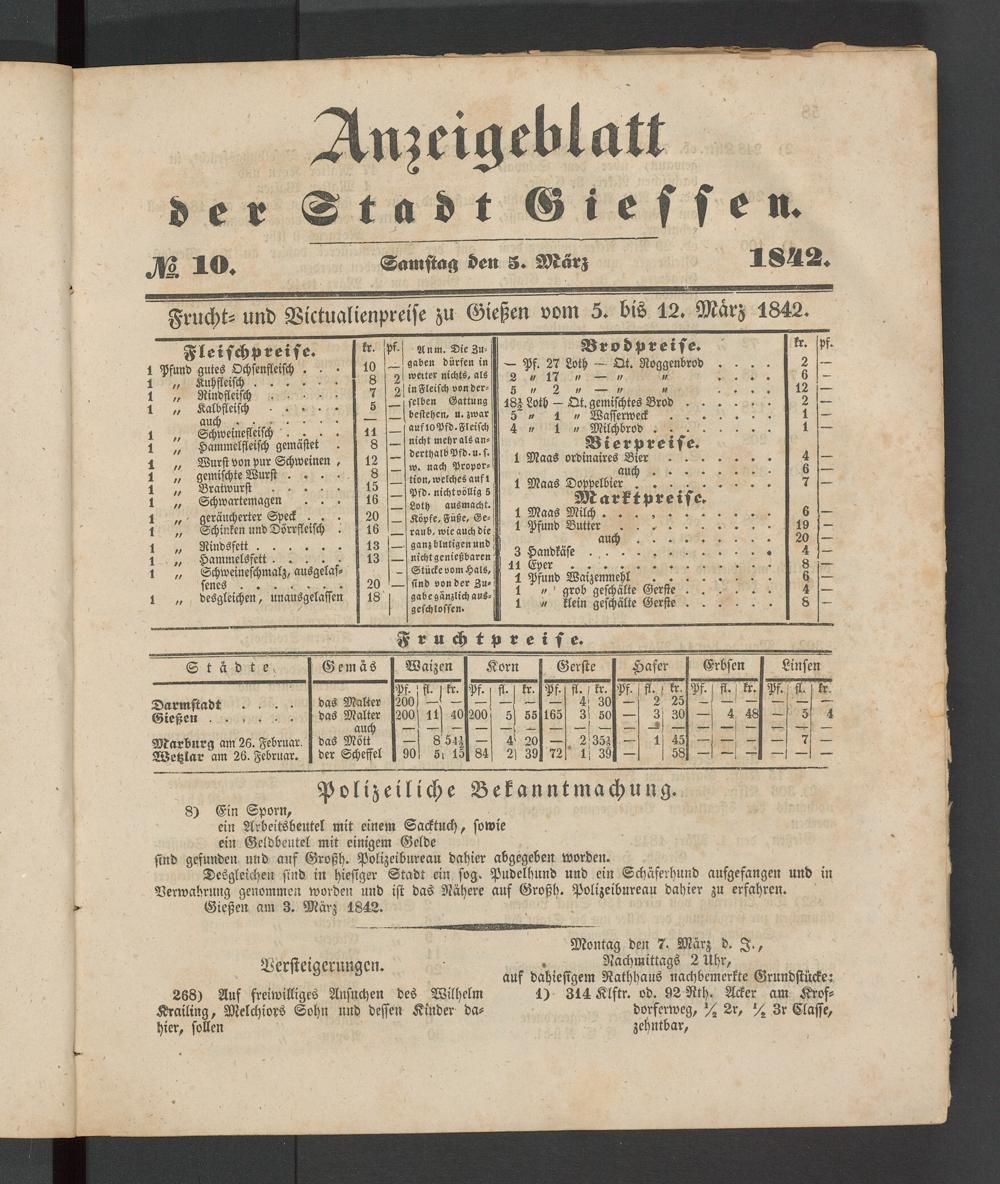 Anzeigeblatt
der Stadt Giessen.
No. 10. Samstag den 5. März 1842.
Frucht- und Victualienpreise zu Gießen vom 5. bis 12. März 1842.
Fleischpreise. kr. pf.
1 Pfund gutes Ochsenfleisch . . . 10 —
1 „ Kuhfleisch . . . . . . 8 2
1 „ Rindfleisch . . . . . 7 2
1 „ Kalbfleisch . . . . . 5 —
auch . . . . . — —
1 „ Schweinefleisch . . . . 11 —
1 „ Hammelfleisch gemästet . 8 —
1 „ Wurst von pur Schweinen , 12 —
1 „ gemischte Wurst . . . . 8 —
1 „ Bratwurst . . . . . 15 —
1 „ Schwartemagen . . . 16 —
1 „ geräucherter Speck . . . 20 —
1 „ Schinken und Dörrfleisch . 16 —
1 „ Rindsfett . . . . . . 13 —
1 „ Hammelsfett . . . . . 13 —
1 „ Schweineschmalz, ausgelas-
senes . . . . . . 20 —
1 „ desgleichen, unausgelassen 18
Anm. Die Zu-
gaben dürfen in
weiter nichts, als
in Fleisch von der-
selben Gattung
bestehen, u. zwar
auf 10 Pfd. Fleisch
nicht mehr als an-
derthalb Pfd. u. s.
w. nach Propor-
tion, welches auf 1
Pfd. nicht völlig 5
Loth ausmacht.
Köpfe, Füße, Ge-
raub, wie auch die
ganz blutigen und
nicht genießbaren
Stücke vom Hals,
sind von der Zu-
gabe gänzlich aus-
geschlossen.
Brodpreise. kr. pf.
— Pf. 27 Loth — Qt. Roggenbrod . . . . 2 —
2 „ 17 „ — „ „ . . . . 6 —
5 „ 2 „ — „ „ . . . . 12 —
18½ Loth — Qt. gemischtes Brod . . . . . 2 —
5 „ 1 „ Wasserweck . . . . . . 1 —
4 „ 1 „ Milchbrod . . . . . . 1 —
Bierpreise.
1 Maas ordinaires Bier . . . . . . 4 —
auch . . . . . . 6 —
1 Maas Doppelbier . . . . . . . 7 —
Marktpreise.
1 Maas Milch . . . . . . . . . 6 —
1 Pfund Butter . . . . . . . . 19 —
auch . . . . . . . 20 —
3 Handkäse . . . . . . . . . . 4 —
11 Eyer . . . . . . . . . . 8 —
1 Pfund Waizenmehl . . . . . . . 6 —
1 „ grob geschälte Gerste . . . . . 4 —
1 „ klein geschälte Gerste . . . . . 8 —
Fruchtpreise.
Städte. Gemäs Waizen Korn Gerste Hafer Erbsen Linsen
Pf. fl. kr. Pf. fl. kr. Pf. fl. kr. Pf. fl. kr. Pf. fl. kr. Pf. fl. kr.
Darmstadt . . . . das Malter 200 — — — — — 4 30 — 2 25 — — — — — —
Gießen . . . . . . das Malter 200 11 40 200 5 55 165 3 50 — 3 30 — 4 48 — 5 4
auch — — — — — — — — — — — — — — — — — —
Marburg am 26. Februar. das Mött — 8 54½ — 4 20 — 2 35½ — 1 45 — — — — 7 —
Wetzlar am 26. Februar. der Scheffel 90 5 15 84 2 39 72 1 39 58 — — — — — —
Polizeiliche Bekanntmachung.
8) Ein Sporn,
ein Arbeitsbeutel mit einem Sacktuch, sowie
ein Geldbeutel mit einigem Gelde
sind gefunden und auf Großh. Polizeibureau dahier abgegeben worden.
Desgleichen sind in hiesiger Stadt ein sog. Pudelhund und ein Schäferhund aufgefangen und in
Verwahrung genommen worden und ist das Nähere auf Großh. Polizeibureau dahier zu erfahren.
Gießen am 3. März 1842.
Versteigerungen.
268) Auf freiwilliges Ansuchen des Wilhelm
Krailing, Melchiors Sohn und dessen Kinder da-
hier, sollen
Montag den 7. März d. J.,
Nachmittags 2 Uhr,
auf dahiesigem Rathhaus nachbemerkte Grundstücke:
1) 314 Klftr. od. 92 Rth. Acker am Krof-
dorferweg, ½ 2r, ½ 3r Classe,
zehntbar,